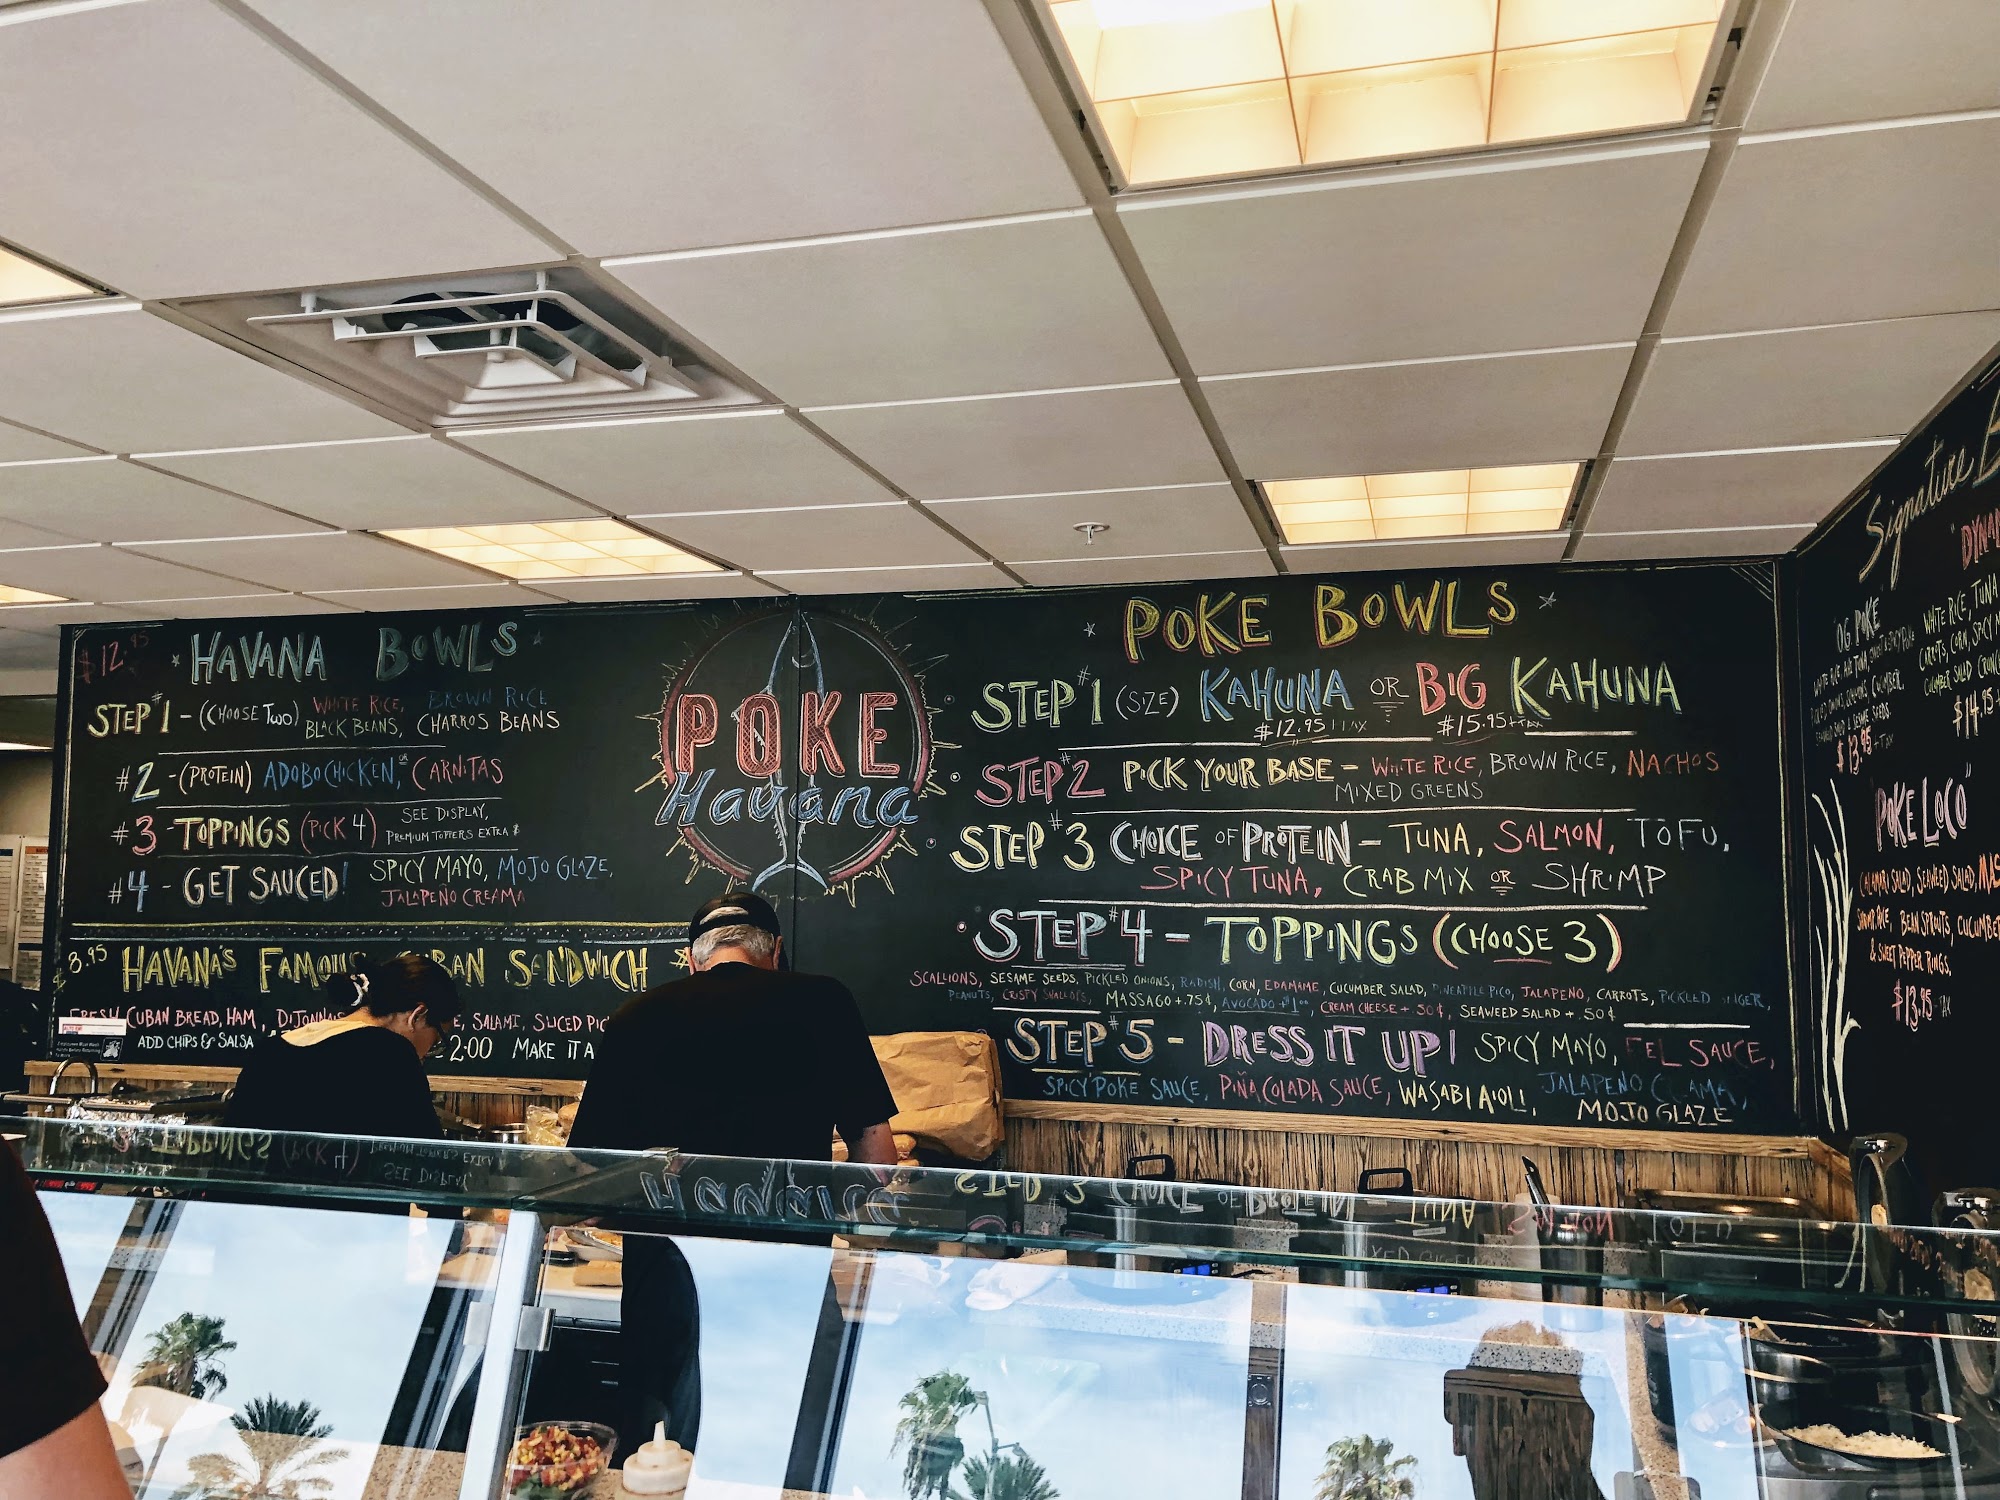 $12.95
HAVANA BOWLS
STEP #1 - (CHOOSE TWO) WHITE RICE, BROWN RICE
BLACK BEANS, CHARROS BEANS
#2 - (PROTEIN) ADOBO CHICKEN, OR CARNITAS
#3 - TOPPINGS (PICK 4) SEE DISPLAY,
PREMIUM TOPPERS EXTRA $
#4 - GET SAUCED! SPICY MAYO, MOJO GLAZE,
JALAPEÑO CREAMA
8.95 HAVANA'S FAMOUS CUBAN SANDWICH $
FRESH CUBAN BREAD, HAM, SALAMI, SLICED
ADD CHIPS & SALSA 2.00 MAKE IT A
POKE
Havana
POKE BOWLS
STEP #1 (SIZE) KAHUNA OR BIG KAHUNA
$12.95 + TAX $15.95 + TAX
STEP #2 PICK YOUR BASE - WHITE RICE, BROWN RICE, NACHOS
MIXED GREENS
STEP #3 CHOICE OF PROTEIN - TUNA, SALMON, TOFU,
SPICY TUNA, CRAB MIX OR SHRIMP
STEP #4 - TOPPINGS (CHOOSE 3)
SCALLIONS, SESAME SEEDS, PICKLED ONIONS, RADISH, CORN, EDAMAME, CUCUMBER SALAD, PINEAPPLE PICO, JALAPENO, CARROTS, PICKLED GINGER,
PEANUTS, CRISTY SHALLOTS, MASSAGO + .75¢, AVOCADO + $1.00, CREAM CHEESE + 50¢, SEAWEED SALAD + .50¢
STEP #5 - DRESS IT UP! SPICY MAYO, EEL SAUCE,
SPICY POKE SAUCE, PIÑA COLADA SAUCE, WASABI AIOLI, JALAPEÑO CREAMA,
MOJO GLAZE
Signature
"OG POKE"
$13.95 + TAX
WHITE RICE, TUNA
CARROTS, CORN, SPICY
CUCUMBER SALAD
$14.95
"POKE LOCO"
CALAMARI SALAD, SEAWEED SALAD,
BEAN SPROUTS, CUCUMBER
& SWEET PEPPER RINGS,
$13.95 + TAX